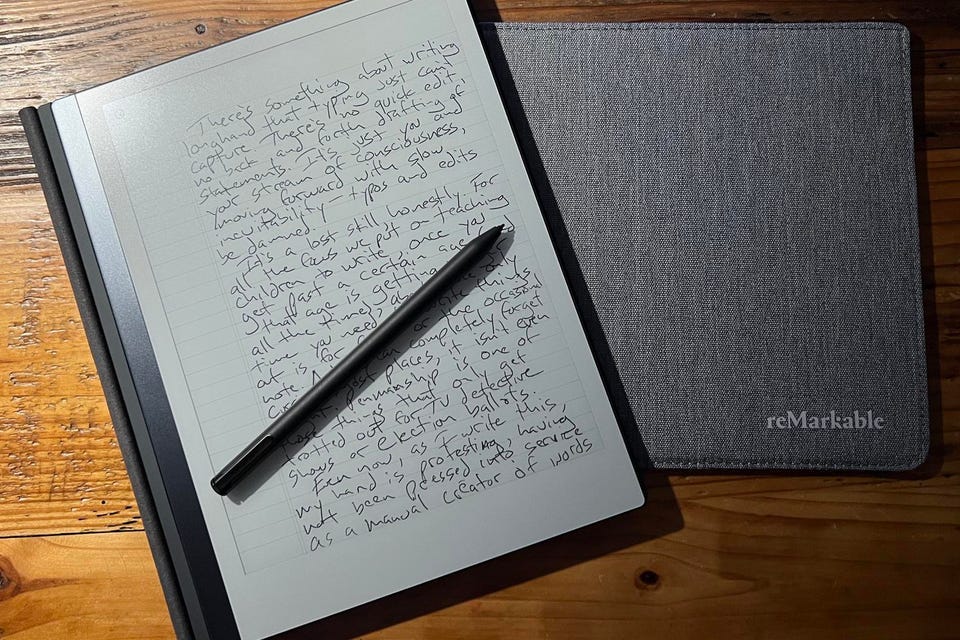 There's something about writing
longhand that typing just can't
capture. There's no quick edit,
no back and forth drafting of
statements. It's just you and
your stream of consciousness,
moving forward with slow
inevitability—typos and edits
be damned.
It's a lost still honestly. For
all the focus we put on teaching
children to write, once you
get past a certain age
that age is getting
all the time), the only
time you need to write things
out is for or the occasional
note. A can completely forget
most places, it isn't even
Penmanship is one of
those things that only get
trotted out for TV detective
shows or election ballots.
Even now, as I write this,
my hand is protesting, having
not been pressed into service
as a manual creator of words
reMarkable